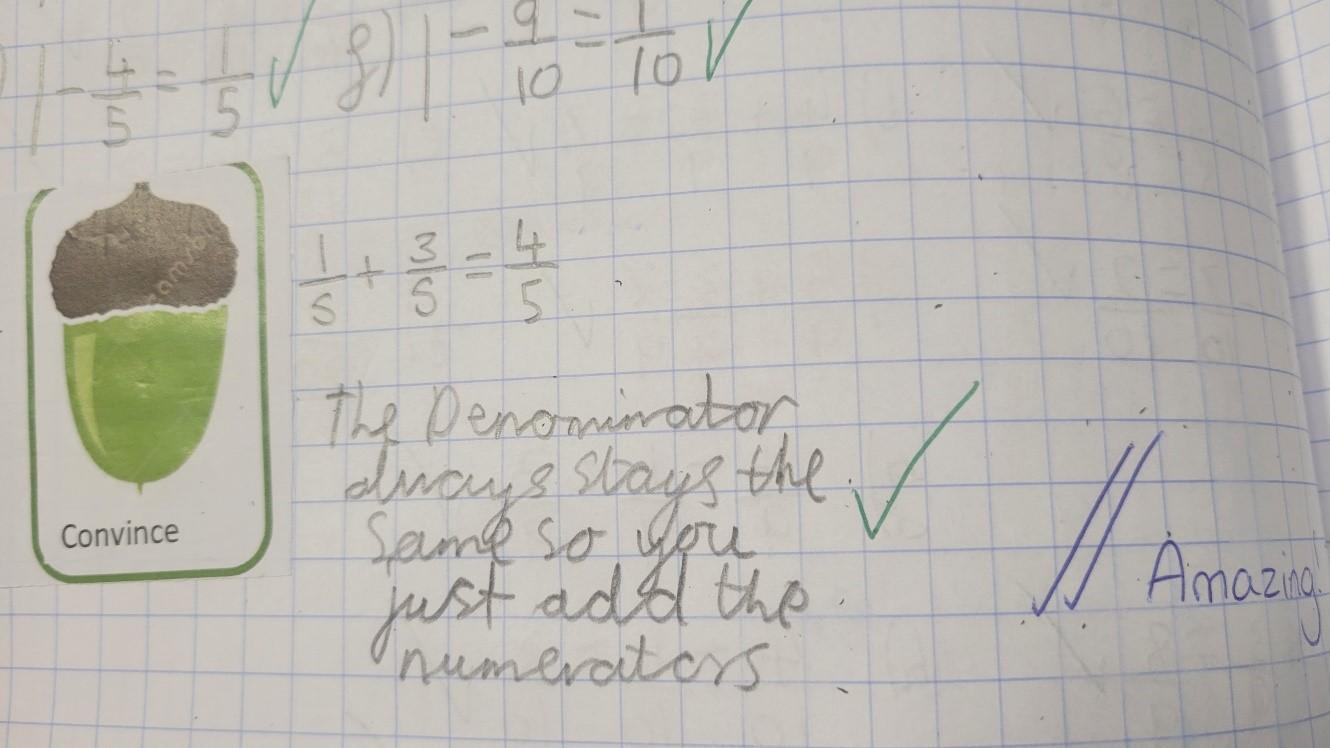 ) 1 - 4/5 = 1/5 f) 1 - 9/10 = 1/10
1/5 + 3/5 = 4/5
The Denominator
always stays the
same so you
just add the
numerators
Amazing!
Convince